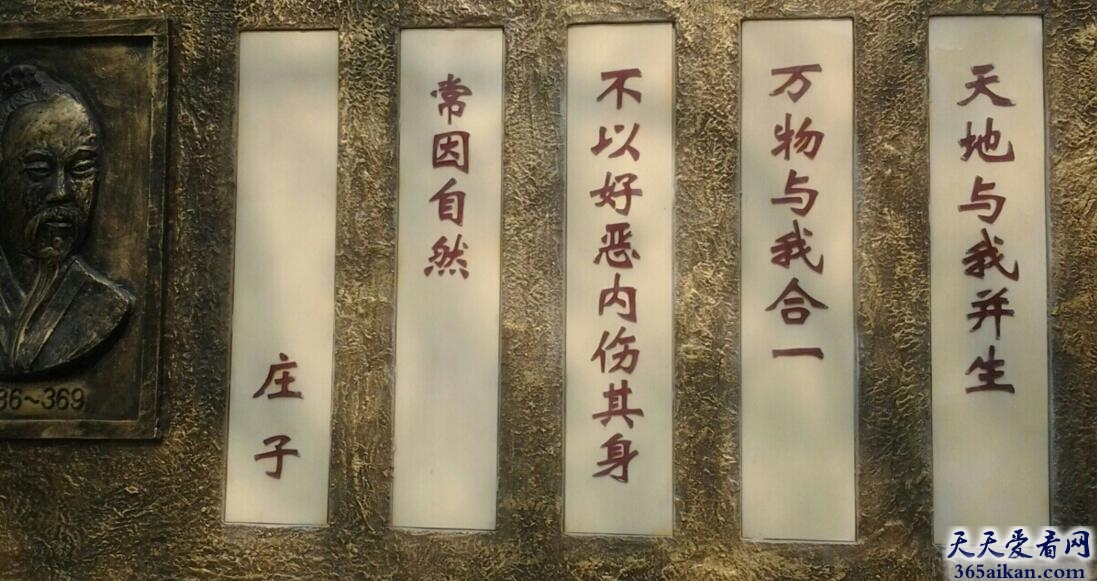 天地与我并生
万物与我合一
不以好恶内伤其身
常因自然
庄子
86~369
天天爱看网
365aikan.com